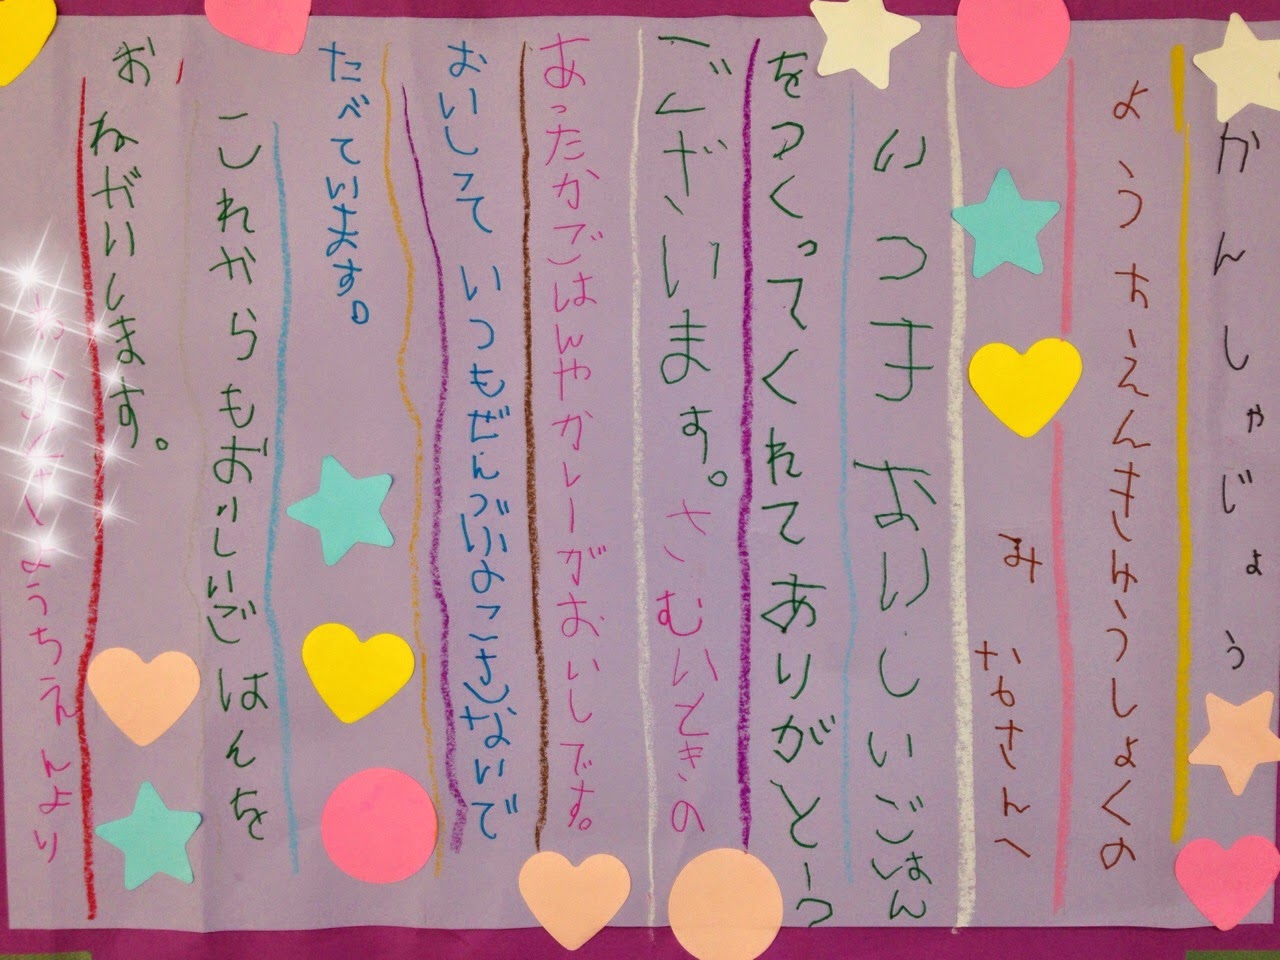 かんしゃじょう
ようちえんきゅうしょくの
みなさんへ
いつもおいしいごはん
をつくってくれてありがとう
ございます。さむいときの
あったかごはんやカレーがおいしです。
おいしくて いつもぜんぶのこさないで
たべています。
これからもおいしいごはんを
おねがいします。
ようちえんより